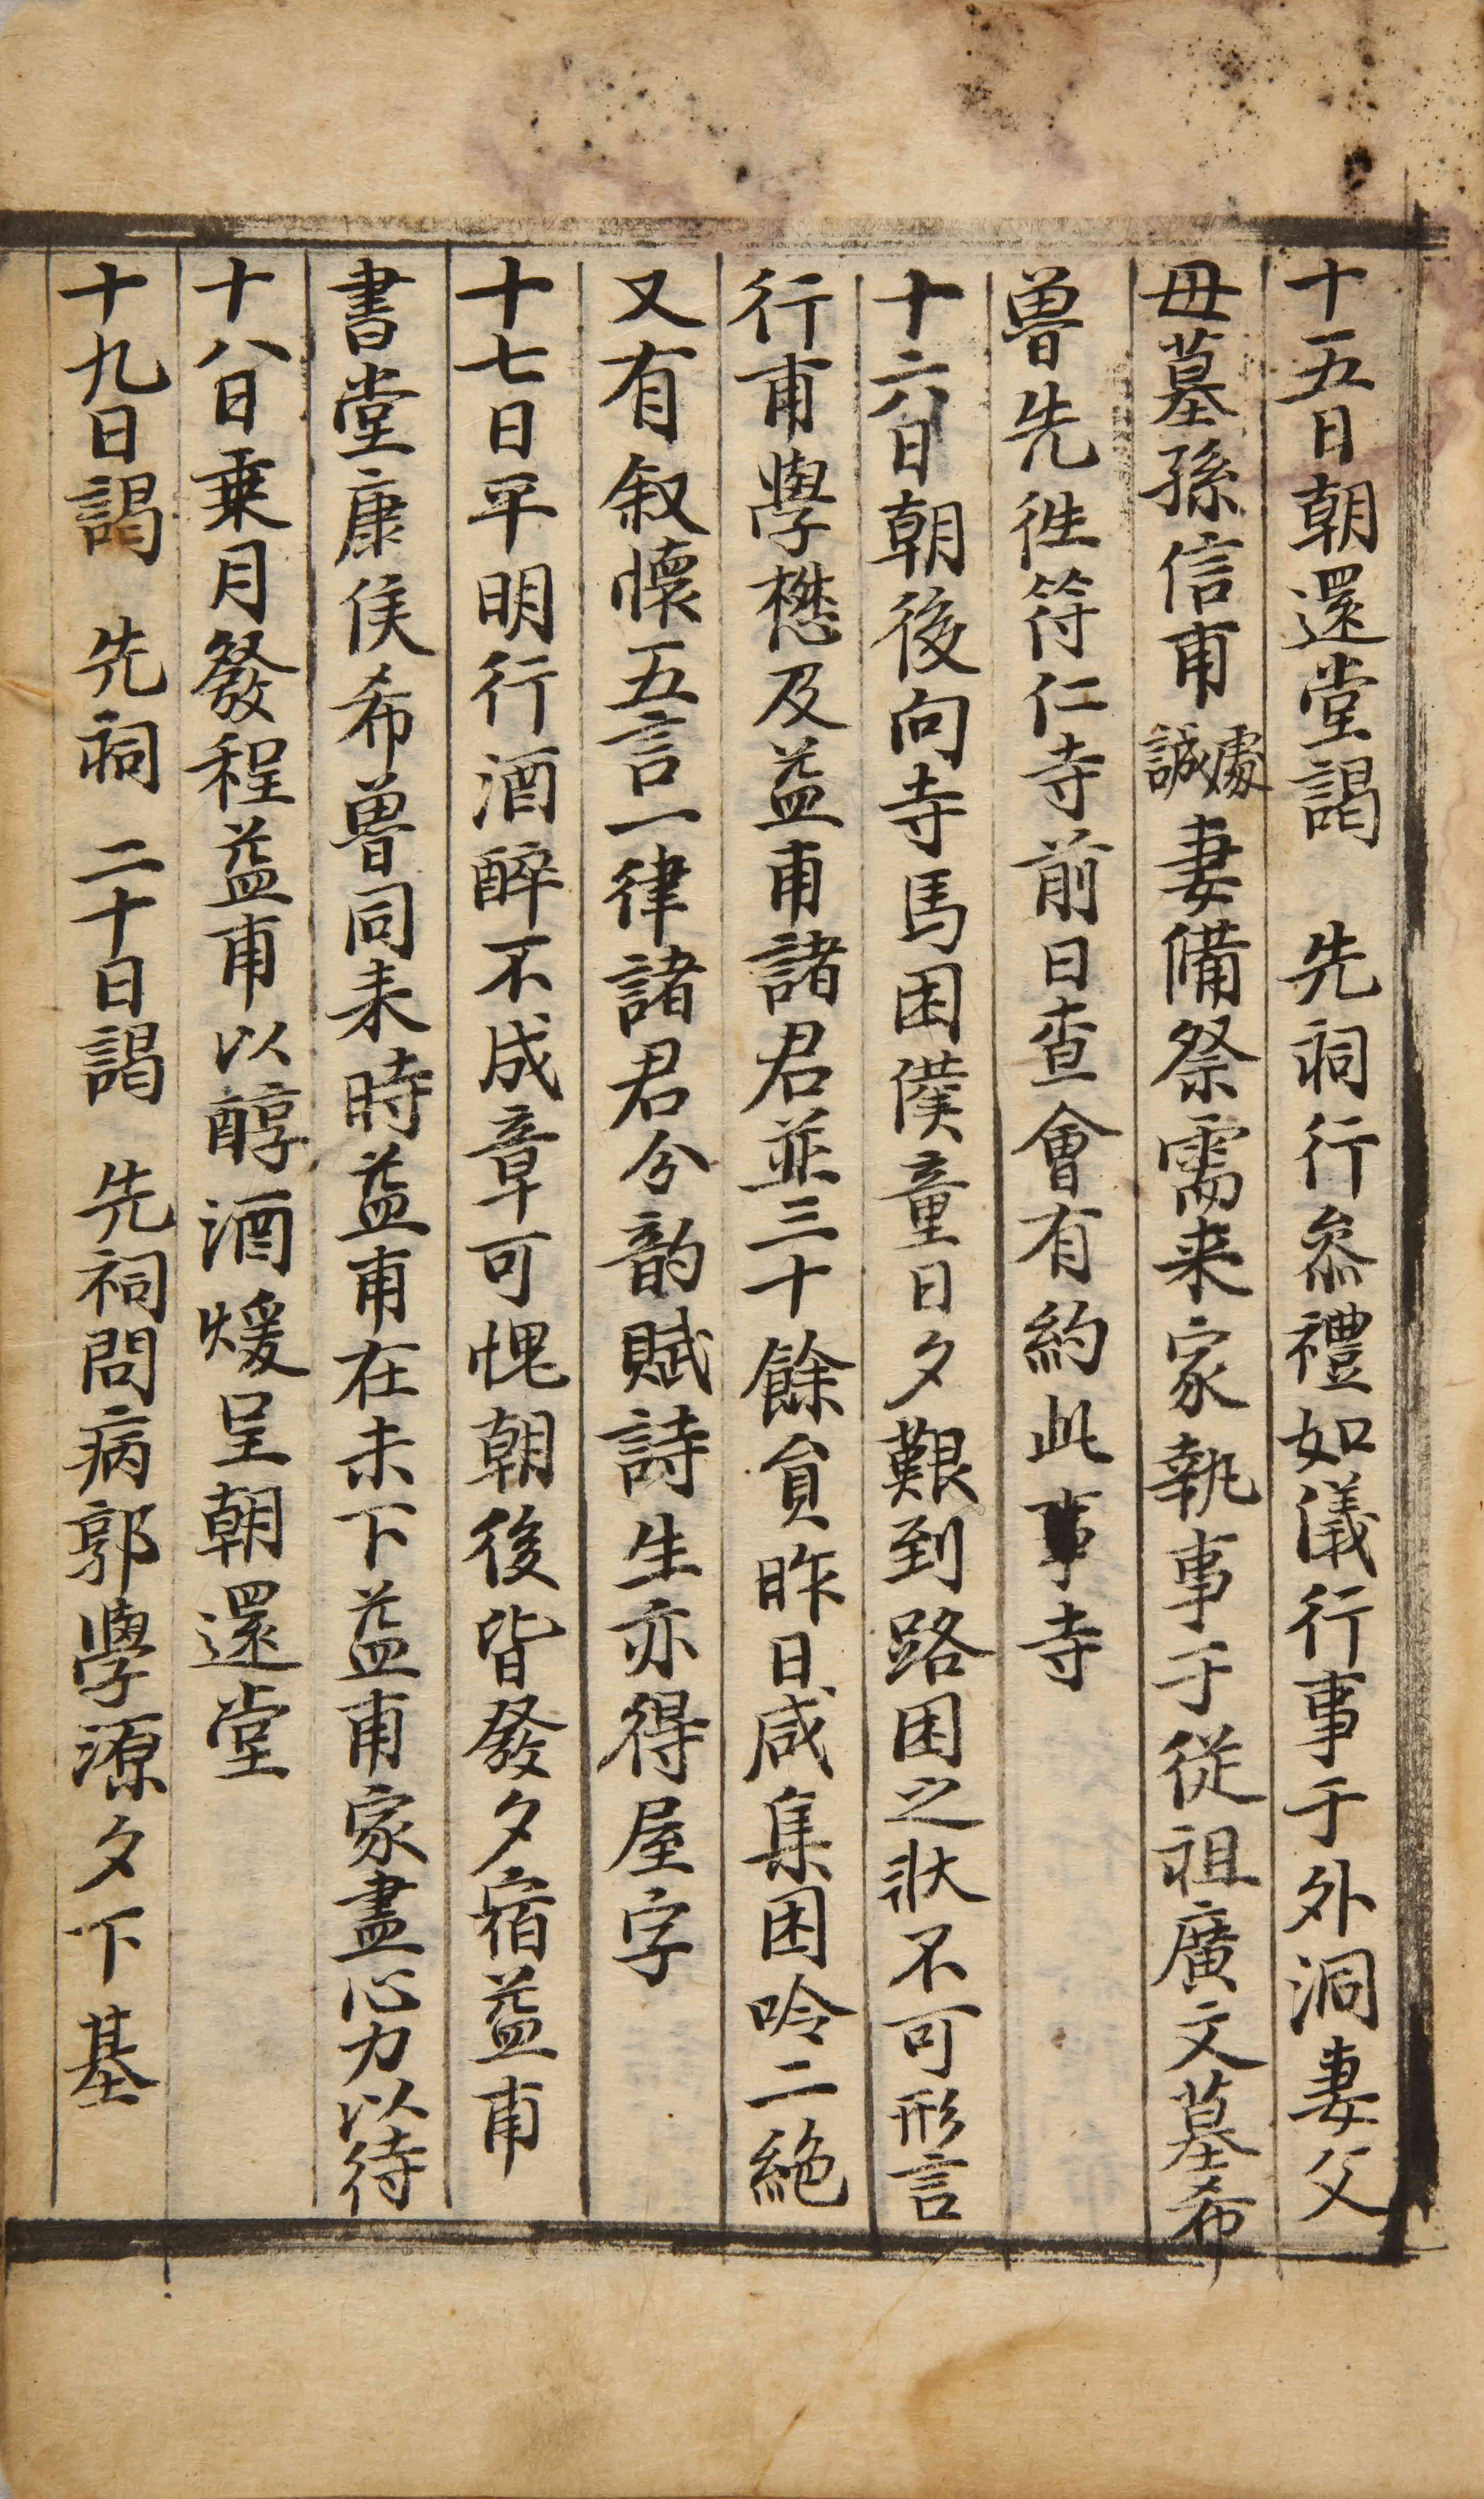 十五日朝還堂謁 先祠行叅禮如儀行事于外洞妻父
毋墓孫信甫處誠妻備祭需来家執事于從祖廣文墓希
魯先徃符仁寺前日查會有約此事寺
十六日朝後向寺馬困僕童日夕艱到路困之狀不可形言
行甫學懋及益甫諸君並三十餘貟昨日咸集困吟二絶
又有叙懷五言一律諸君分韵賦詩生亦得屋字
十七日平明行酒醉不成章可愧朝後皆發夕宿益甫
書堂康侯希魯同来時益甫在未下益甫家盡心力以待
十八日乗月發程益甫以醇酒煖呈朝還堂
十九日謁 先祠 二十日謁 先祠問病郭學源夕下基